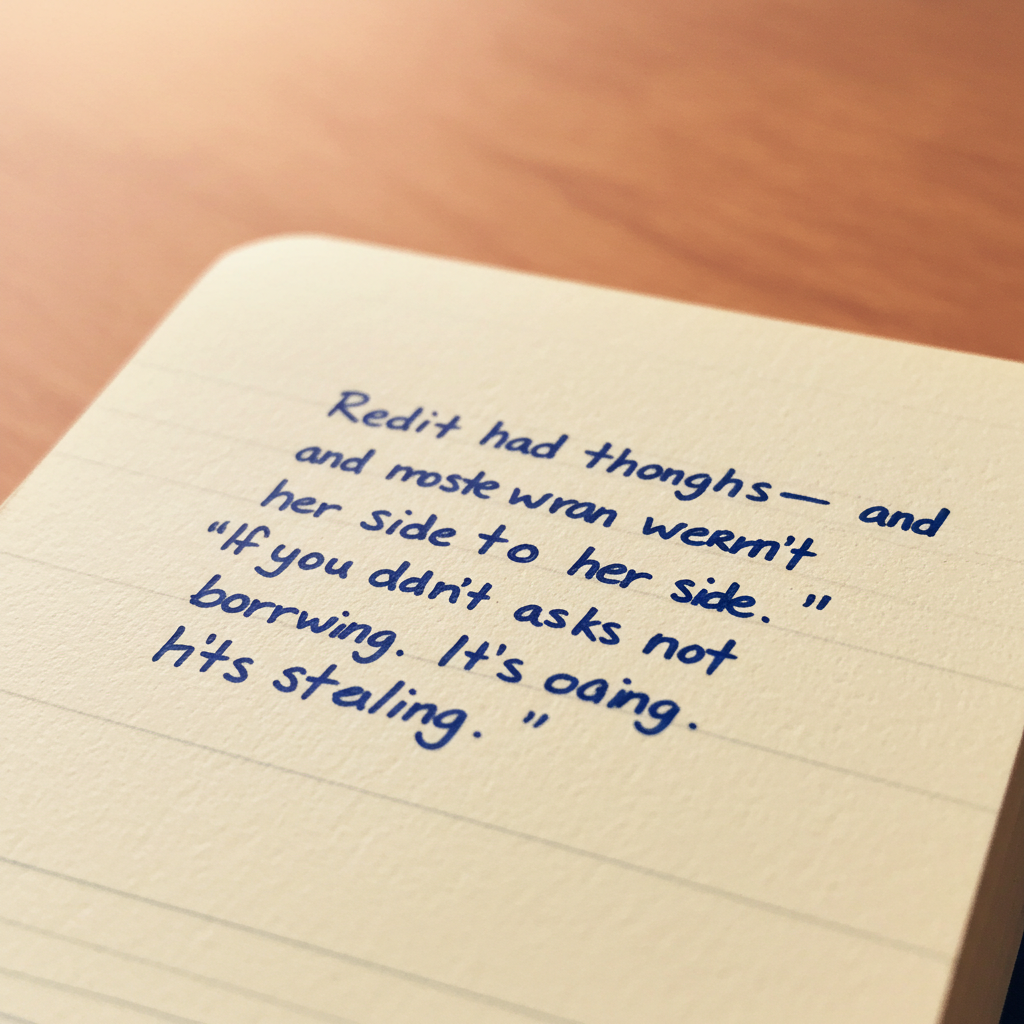 Redit had thonghs — and
and moste wran werrn't
her side to her side."
"If you ddn't asks not
borrwing. It's oaing.
h'ts stealing."